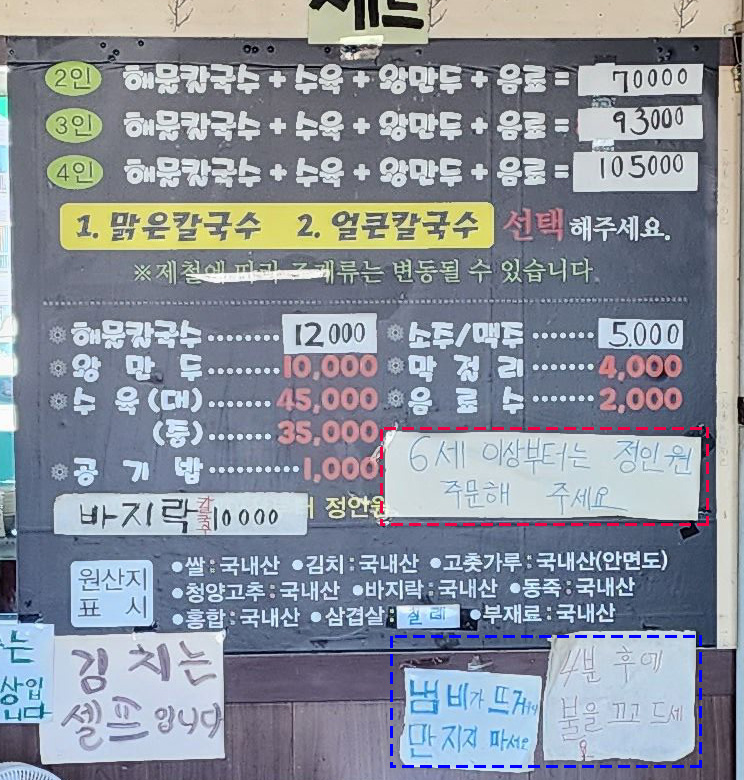 세트
2인 해물칼국수 + 수육 + 왕만두 + 음료 = 70000
3인 해물칼국수 + 수육 + 왕만두 + 음료 = 93000
4인 해물칼국수 + 수육 + 왕만두 + 음료 = 105000
1. 맑은칼국수 2. 얼큰칼국수 선택 해주세요.
※제철에 따라 조개류는 변동될 수 있습니다.
해물칼국수 12000 소주/맥주 5.000
왕만두 10,000 막걸리 4,000
수육(대) 45,000 음료수 2,000
(중) 35,000
공기밥 1,000
6세 이상부터는 정인원
주문해 주세요
바지락칼국수 10000 정인원
원산지
표시
•쌀:국내산 •김치:국내산 •고춧가루:국내산(안면도)
•청양고추:국내산 •바지락:국내산 •동죽:국내산
•홍합:국내산 •삼겹살: •부재료:국내산
는
상입
니다
김치는
셀프입니다
냄비가 뜨거
만지지 마세요
4분 후에
불을 끄고 드세
요